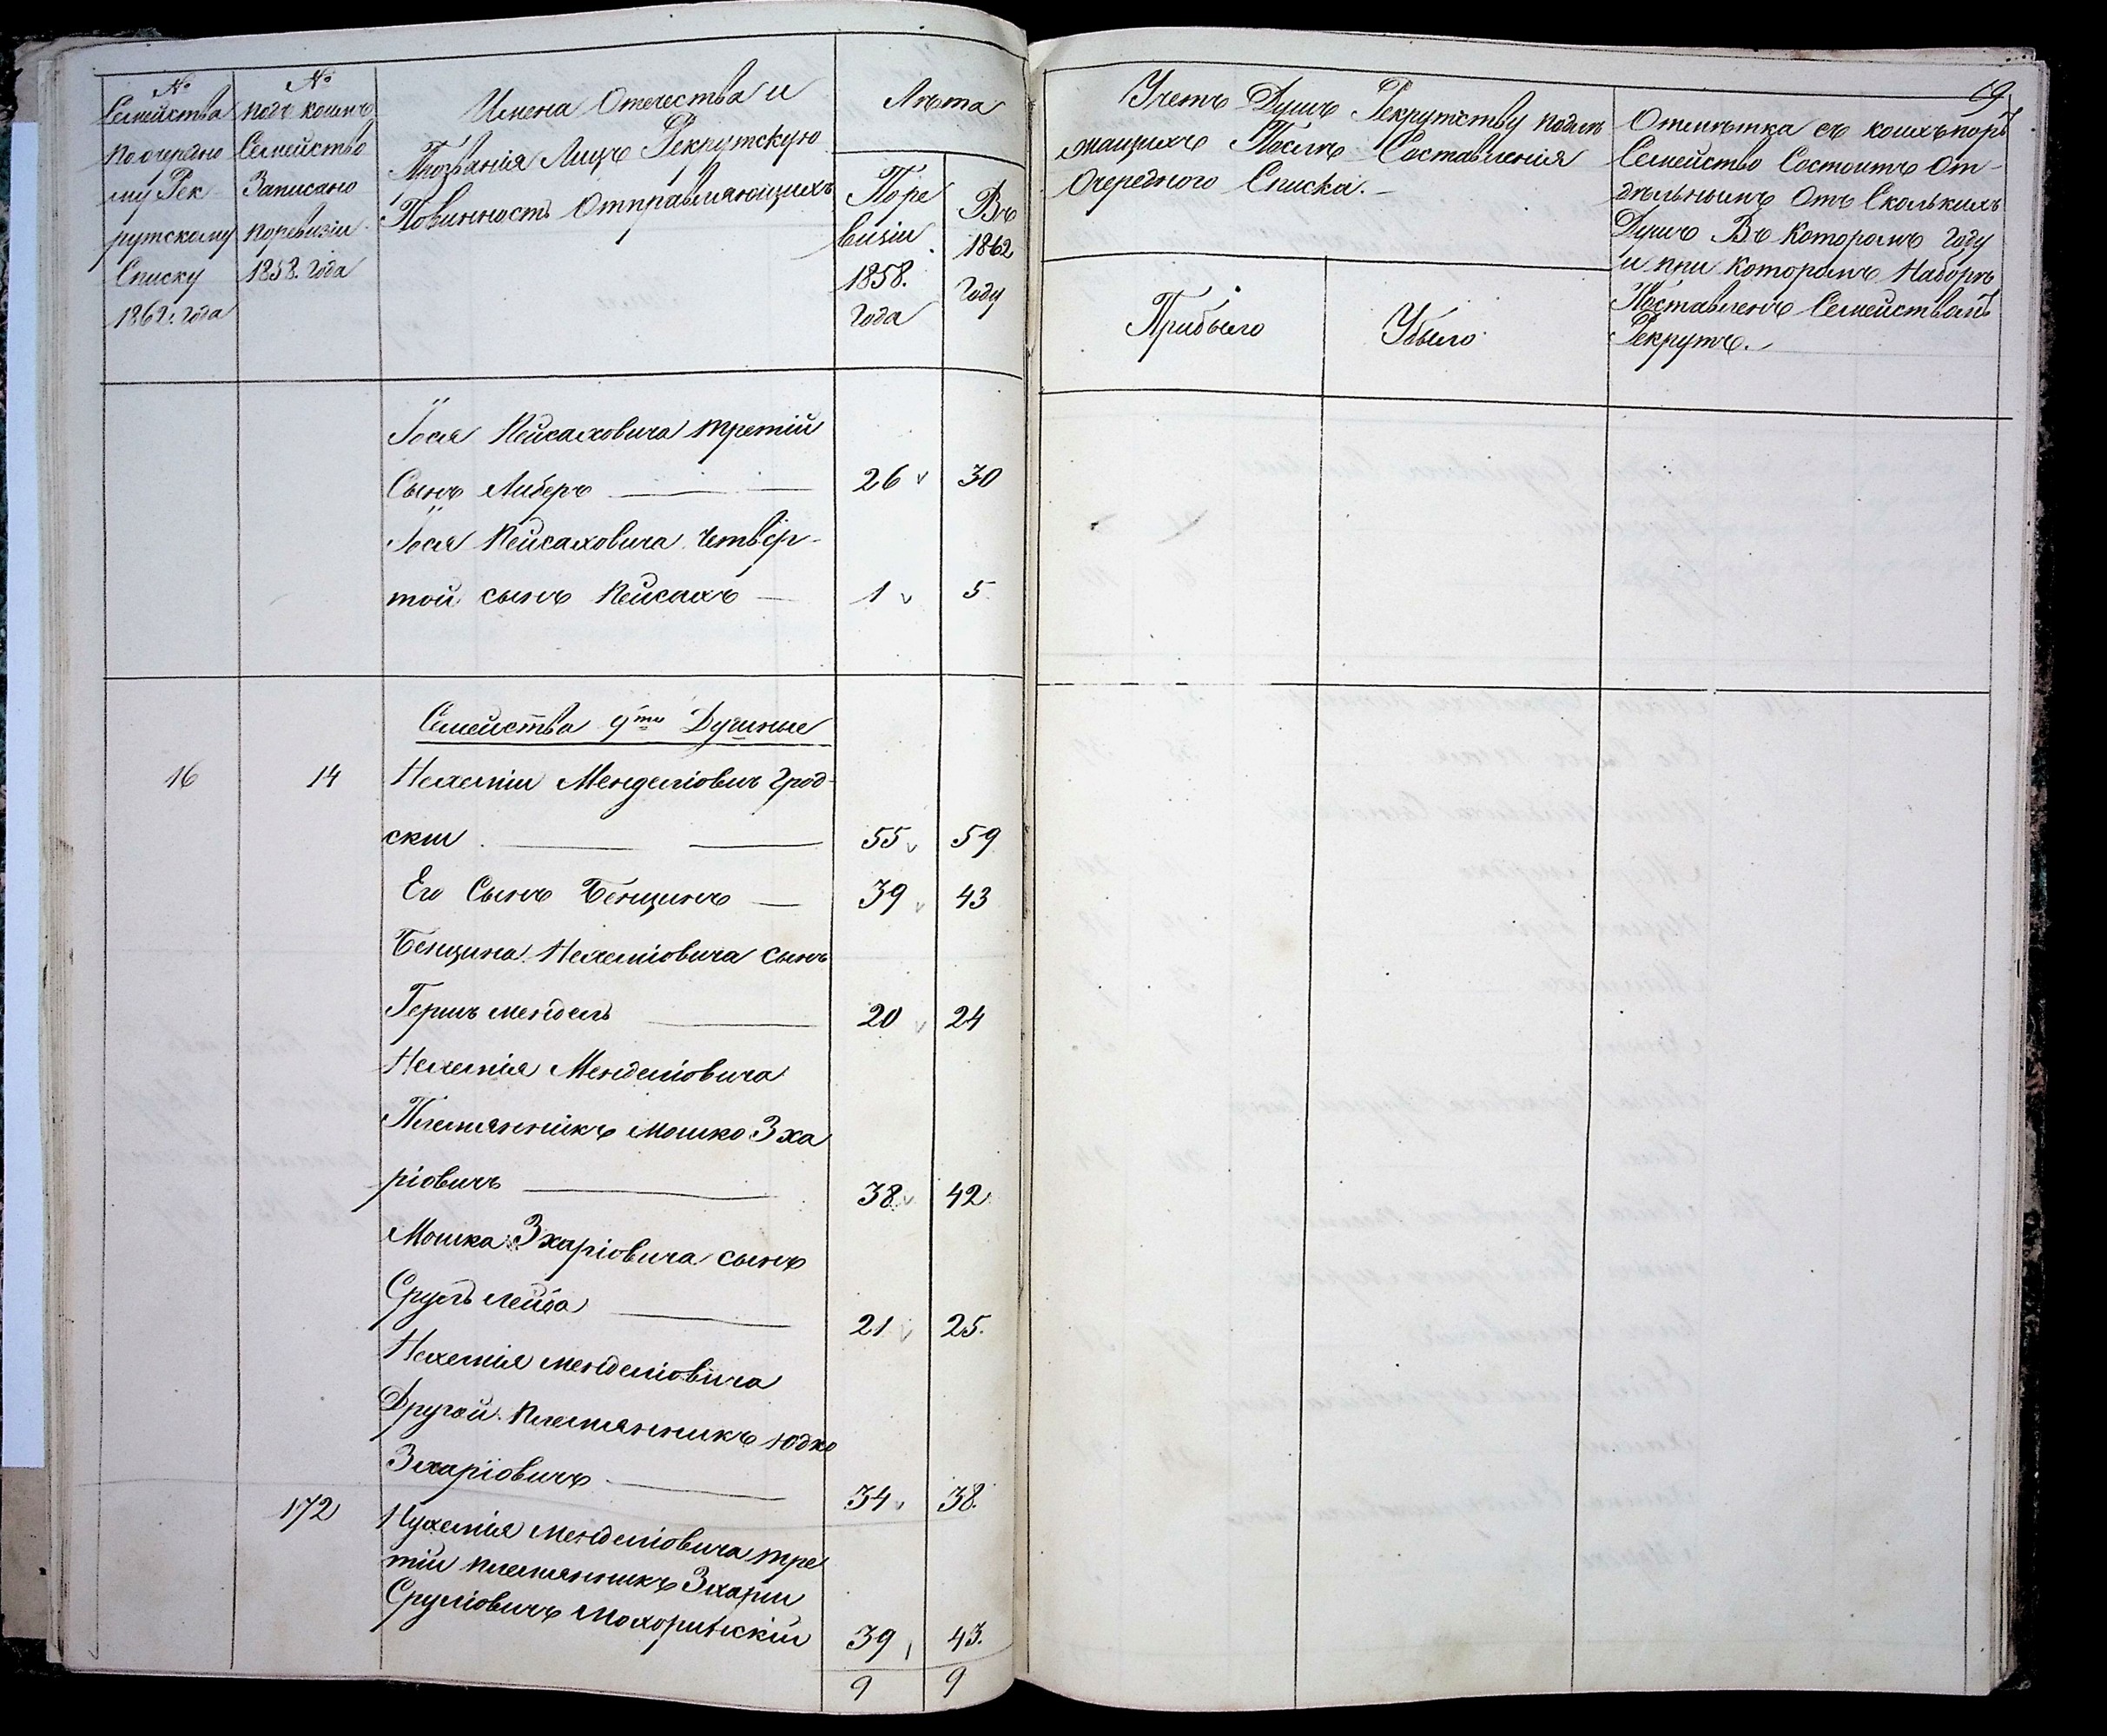 №
Семейства
по очередно
му Рек
рутскому
Списку
1862. года
№
подъ коимъ
Семейство
Записано
по ревизіи
1858. года
Имена Отечества и
Прозванія Лицъ Рекрутскую
Повинность Отправляющихъ
Лѣта
По ре
визіи
1858.
года
Въ
1862
году
Іося Пейсаховича третій
Сынъ Либеръ 26 30
Іося Пейсаховича четвер-
той сынъ Пейсахъ 1 5
Семейства 9ти Душные
16 14 Нехеміи Менделіовичъ Грод-
скіи 55 59
Его Сынъ Бенцинъ 39 43
Бенцина Нехеміовича сынъ
Гершъ Мендель 20 24
Нехемія Менделіовича
Племянникъ Мошко Зха
ріовичъ 38 42
Мошка Зхаріовича сынъ
Сруль Лейба 21 25.
Нехемія Менделіовича
Другой племянникъ Юдко
Зхаріовичъ 34 38.
172 Нухемія Менделіовича тре
тіи племянникъ Зхаріи
Сруліовичъ Мохоринскій 39 43.
9 9
69
Учетъ Душъ Рекрутству подле
жащихъ Послѣ Составленія
Очереднаго Списка.
Прибыло
Убыло
Отмѣтка съ коихъ поръ
Семейство Состоитъ От-
дѣльнымъ Отъ Сколькихъ
Душъ Въ Которомъ году
и при Которомъ Наборѣ
Поставленъ Семействомъ
Рекрутъ.